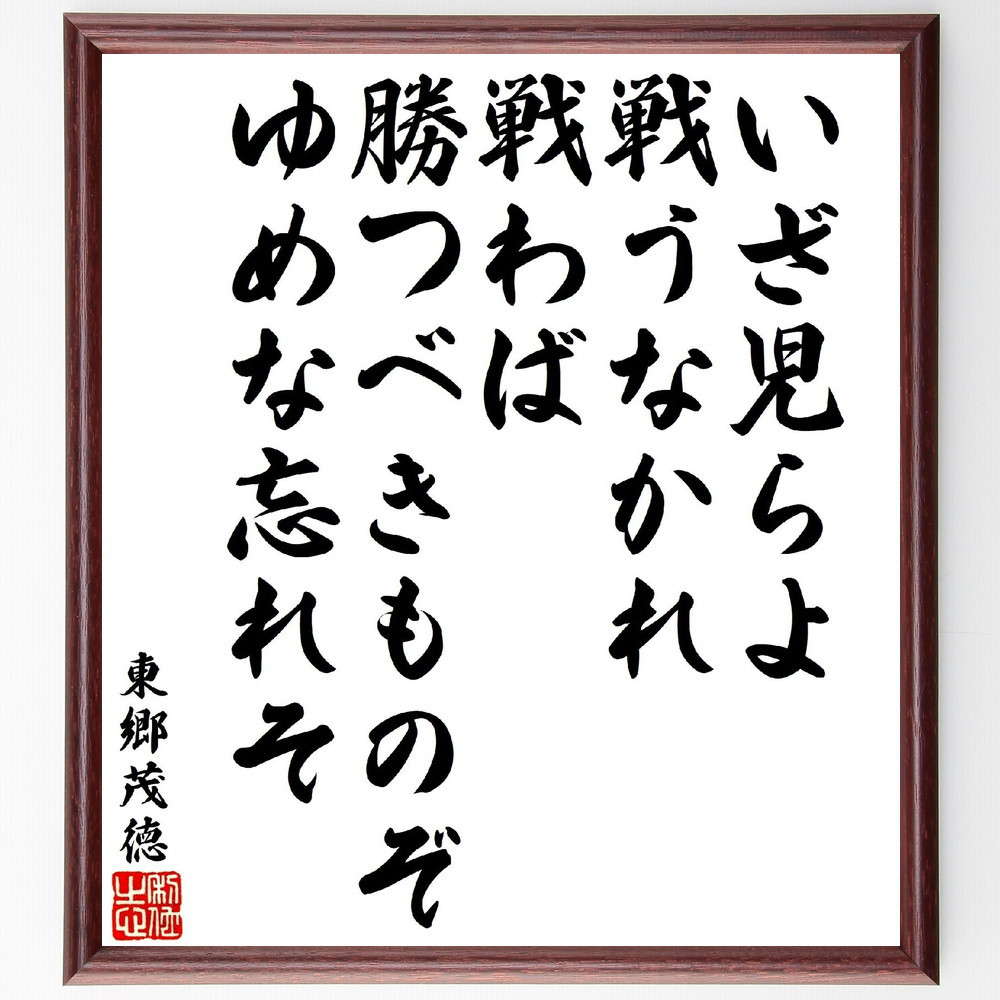 いざ児らよ
戦うなかれ
戦わば
勝つべきものぞ
ゆめな忘れそ
東郷茂徳